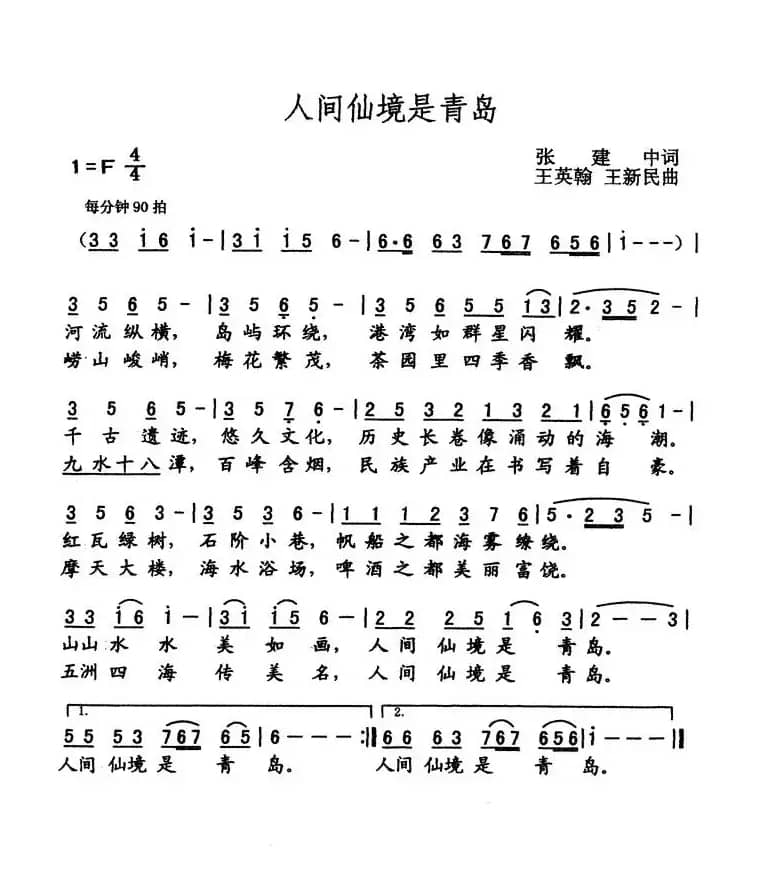 人间仙境是青岛
1=F 4/4
张 建 中词
王英翰 王新民曲
每分钟 90 拍
(3 3 i 6 i - | 3 i i 5 6 - | 6·6 6 3 7 6 7 6 5 6 | i - - - ) |
3 5 6 5 - | 3 5 6 5 - | 3 5 6 5 5 1 3 | 2·3 5 2 - |
河 流 纵 横, 岛 屿 环 绕, 港 湾 如 群 星 闪 耀。
崂 山 峻 峭, 梅 花 繁 茂, 茶 园 里 四 季 香 飘。
3 5 6 5 - | 3 5 7 6 - | 2 5 3 2 1 3 2 1 | 6 5 6 1 - |
千 古 遗 迹, 悠 久 文 化, 历 史 长 卷 像 涌 动 的 海 潮。
九 水 十 八 潭, 百 峰 含 烟, 民 族 产 业 在 书 写 着 自 豪。
3 5 6 3 - | 3 5 3 6 - | 1 1 1 2 3 7 6 | 5·2 3 5 - |
红 瓦 绿 树, 石 阶 小 巷, 帆 船 之 都 海 雾 缭 绕。
摩 天 大 楼, 海 水 浴 场, 啤 酒 之 都 美 丽 富 饶。
3 3 i 6 i - | 3 i i 5 6 - | 2 2 2 5 1 6 3 | 2 - - 3 |
山 山 水 水 美 如 画, 人 间 仙 境 是 青 岛。
五 洲 四 海 传 美 名, 人 间 仙 境 是 青 岛。
1. 2.
5 5 5 3 7 6 7 6 5 | 6 - - - :|| 6 6 6 3 7 6 7 6 5 6 | i - - - ||
人间 仙境 是 青 岛。 人间 仙境 是 青 岛。